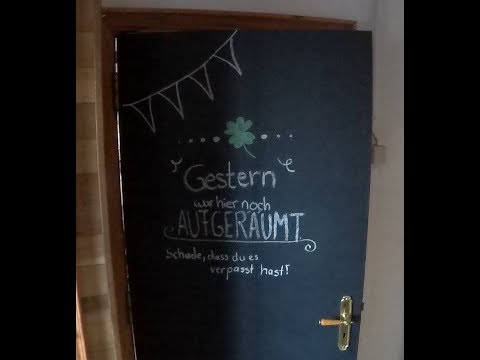 Gestern
war hier noch
AUFGERÄUMT
Schade, dass du es
verpasst hast!